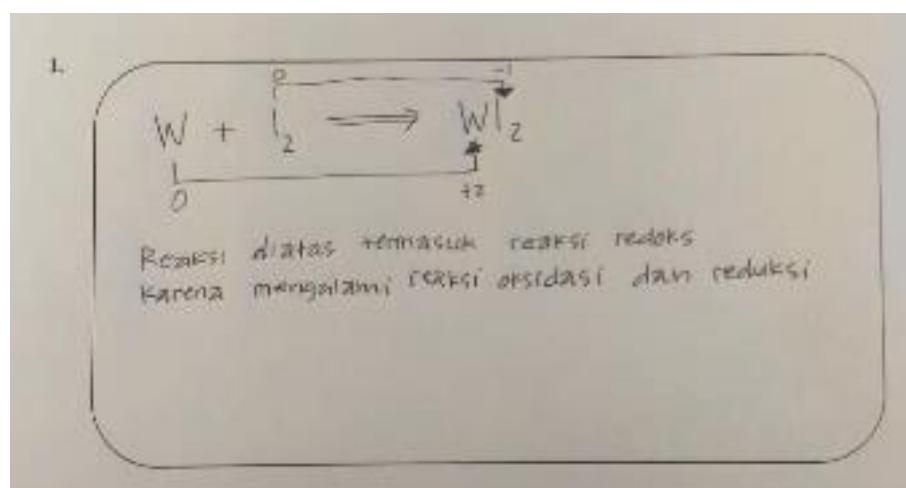 1.
0 -1
W + I₂ ⟹ WI₂
0 +2
Reaksi diatas termasuk reaksi redoks
Karena mengalami reaksi oksidasi dan reduksi